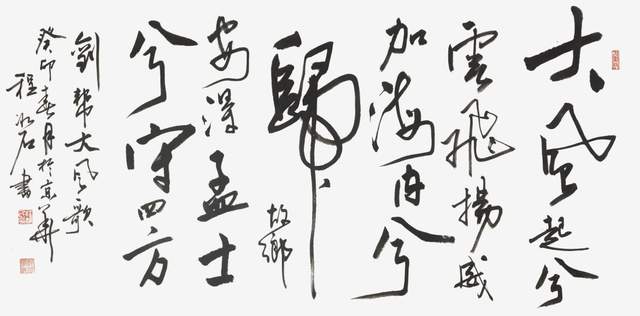 大風起兮
雲飛揚威
加海内兮
歸故鄉
安得孟士
兮守四方
劉邦大風歌
癸卯春月於京華
程冰石書